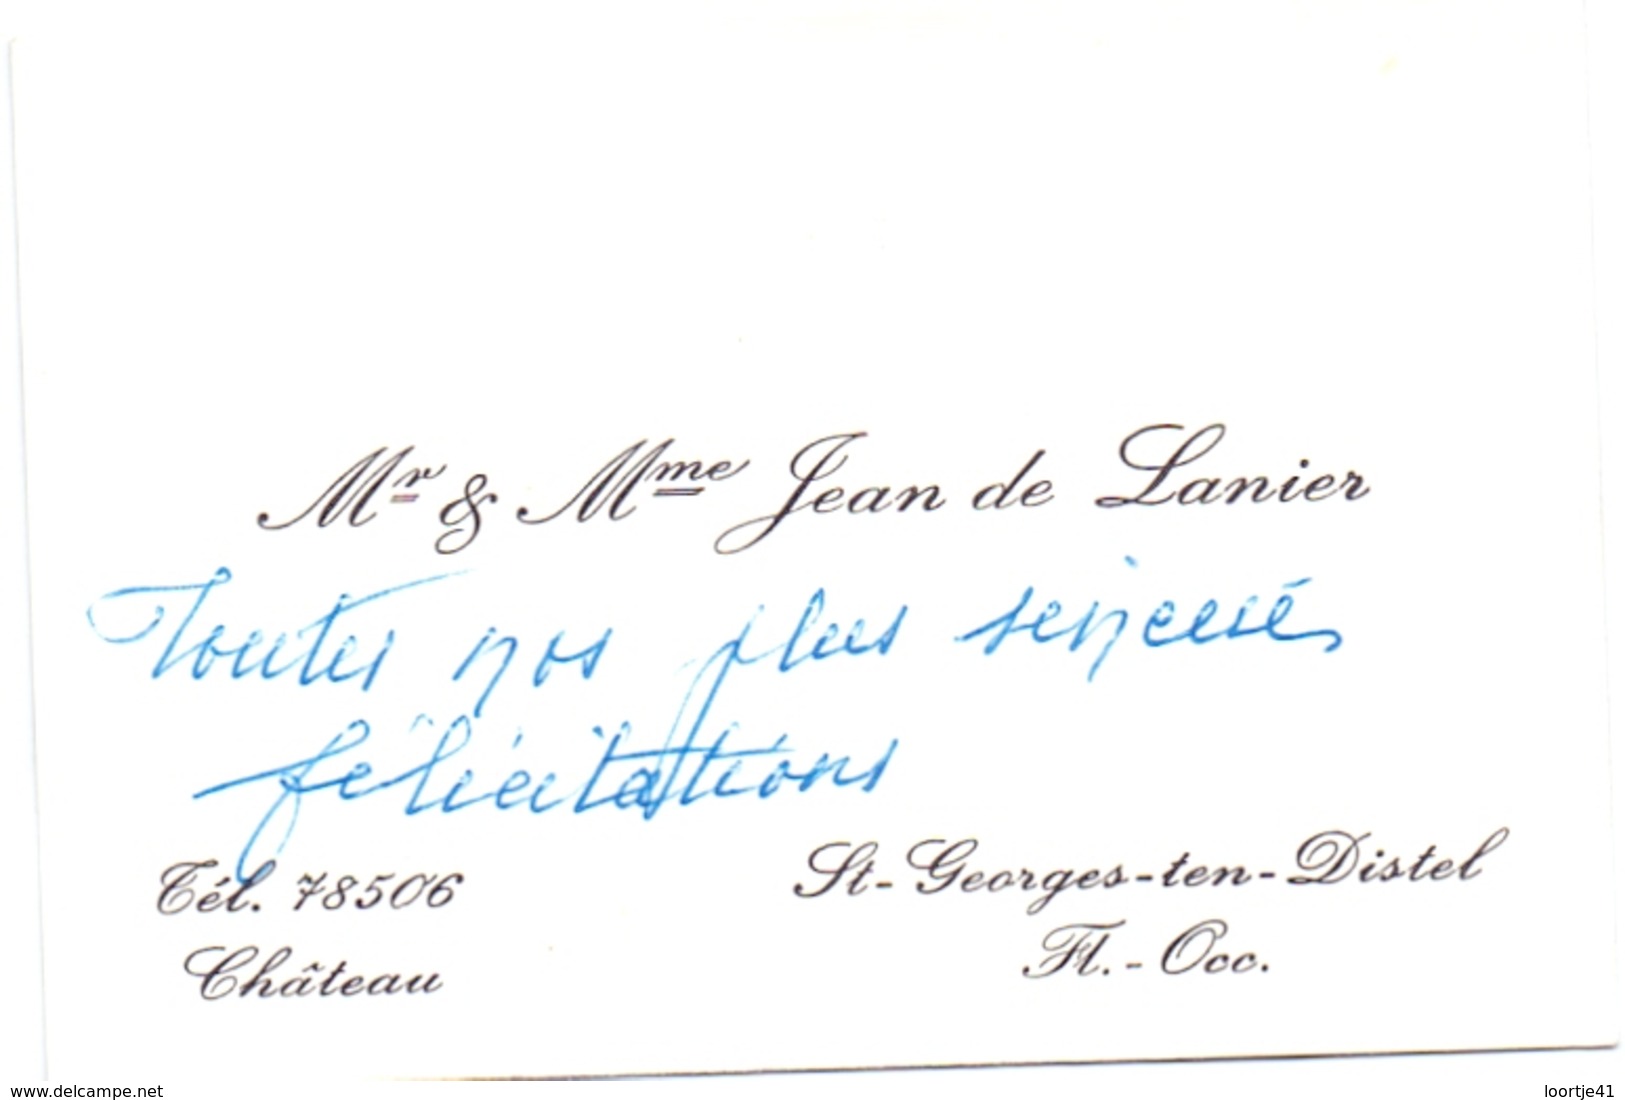 Mr & Mme Jean de Lanier
Toutes nos plus
félicitations
Tél. 78506
Château
St-Georges-ten-Distel
Fl.-Occ.
www.delcampe.net
loortje41